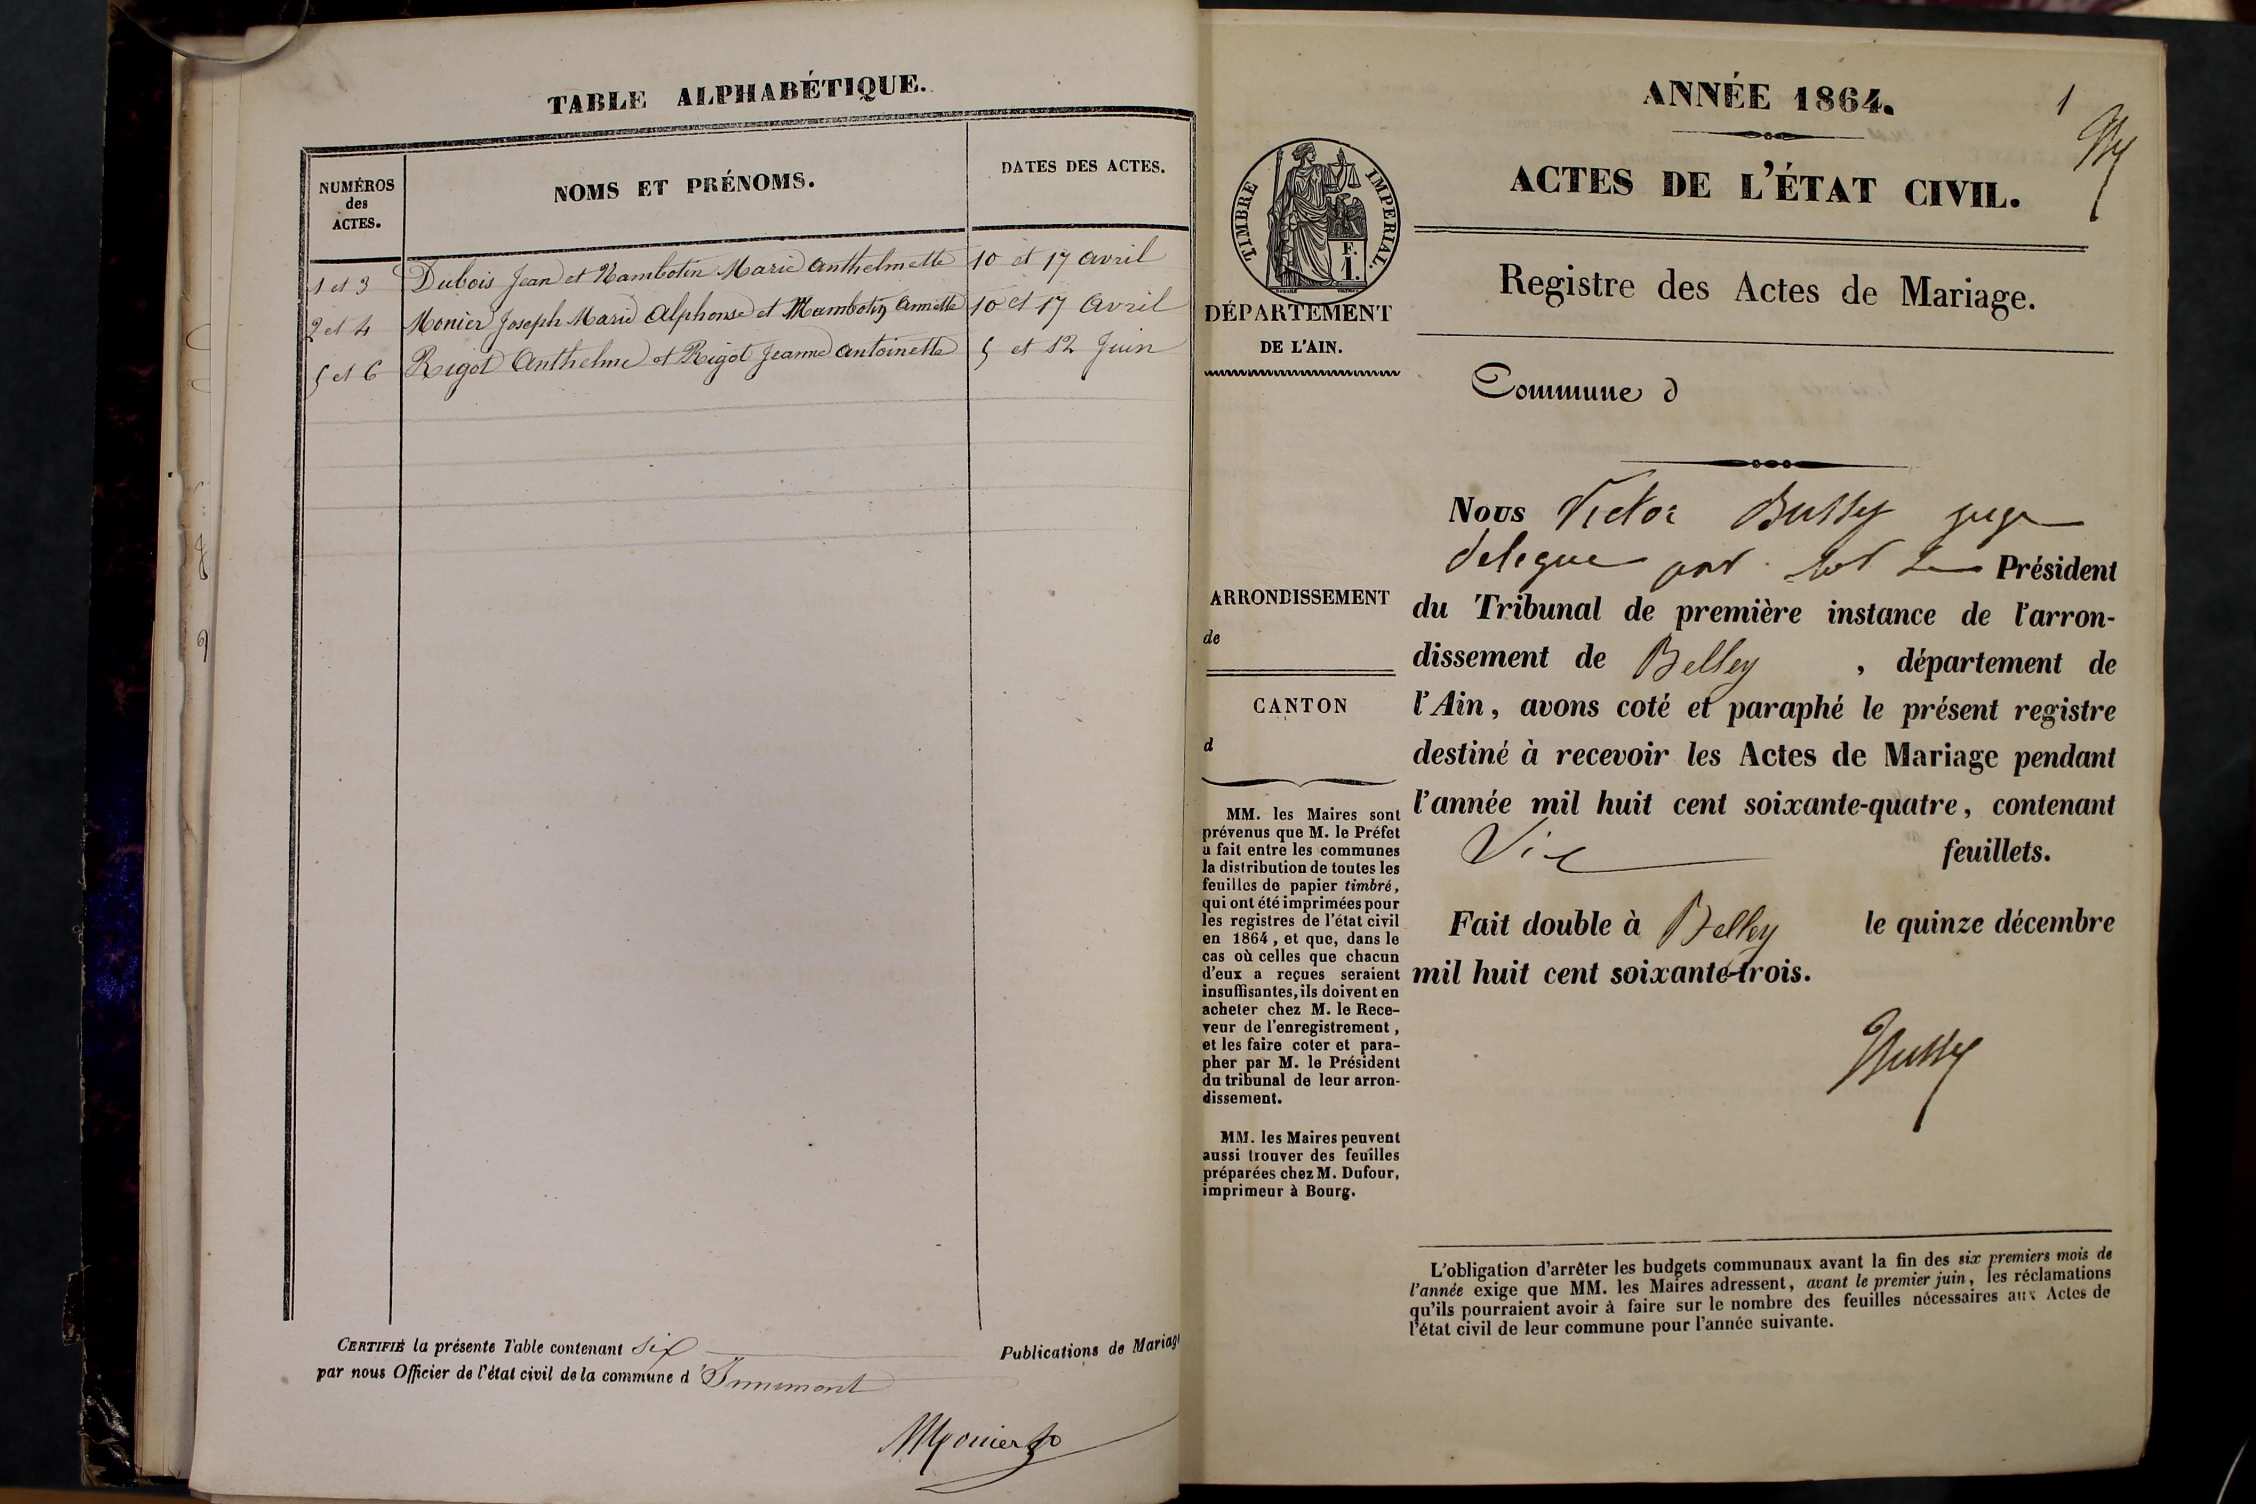 TABLE ALPHABÉTIQUE.
NUMÉROS
des
ACTES.
NOMS ET PRÉNOMS.
DATES DES ACTES.
1 et 3 Dubois Jean et Mambotin Marie Anthelmette 10 et 17 avril
2 et 4 Monier Joseph Marie Alphonse et Mambotin Annette 10 et 17 Avril
5 et 6 Rigot Anthelme et Rigot Jeanne Antoinette 5 et 12 Juin
CERTIFIÉ la présente Table contenant six Publications de Mariage
par nous Officier de l'état civil de la commune d'Innimont
Monier
ANNÉE 1864.
1
By
ACTES DE L'ÉTAT CIVIL.
TIMBRE IMPERIAL.
F.
1.
Registre des Actes de Mariage.
DÉPARTEMENT
DE L'AIN.
Commune d
ARRONDISSEMENT
de
CANTON
d
MM. les Maires sont
prévenus que M. le Préfet
a fait entre les communes
la distribution de toutes les
feuilles de papier timbré,
qui ont été imprimées pour
les registres de l'état civil
en 1864, et que, dans le
cas où celles que chacun
d'eux a reçues seraient
insuffisantes, ils doivent en
acheter chez M. le Rece-
veur de l'enregistrement,
et les faire coter et para-
pher par M. le Président
du tribunal de leur arron-
dissement.
MM. les Maires peuvent
aussi trouver des feuilles
préparées chez M. Dufour,
imprimeur à Bourg.
Nous Victor Bussy juge
delegue par Président
du Tribunal de première instance de l'arron-
dissement de Belley, département de
l'Ain, avons coté et paraphé le présent registre
destiné à recevoir les Actes de Mariage pendant
l'année mil huit cent soixante-quatre, contenant
Six feuillets.
Fait double à Belley le quinze décembre
mil huit cent soixante-trois.
Bussy
L'obligation d'arrêter les budgets communaux avant la fin des six premiers mois de
l'année exige que MM. les Maires adressent, avant le premier juin, les réclamations
qu'ils pourraient avoir à faire sur le nombre des feuilles nécessaires aux Actes de
l'état civil de leur commune pour l'année suivante.